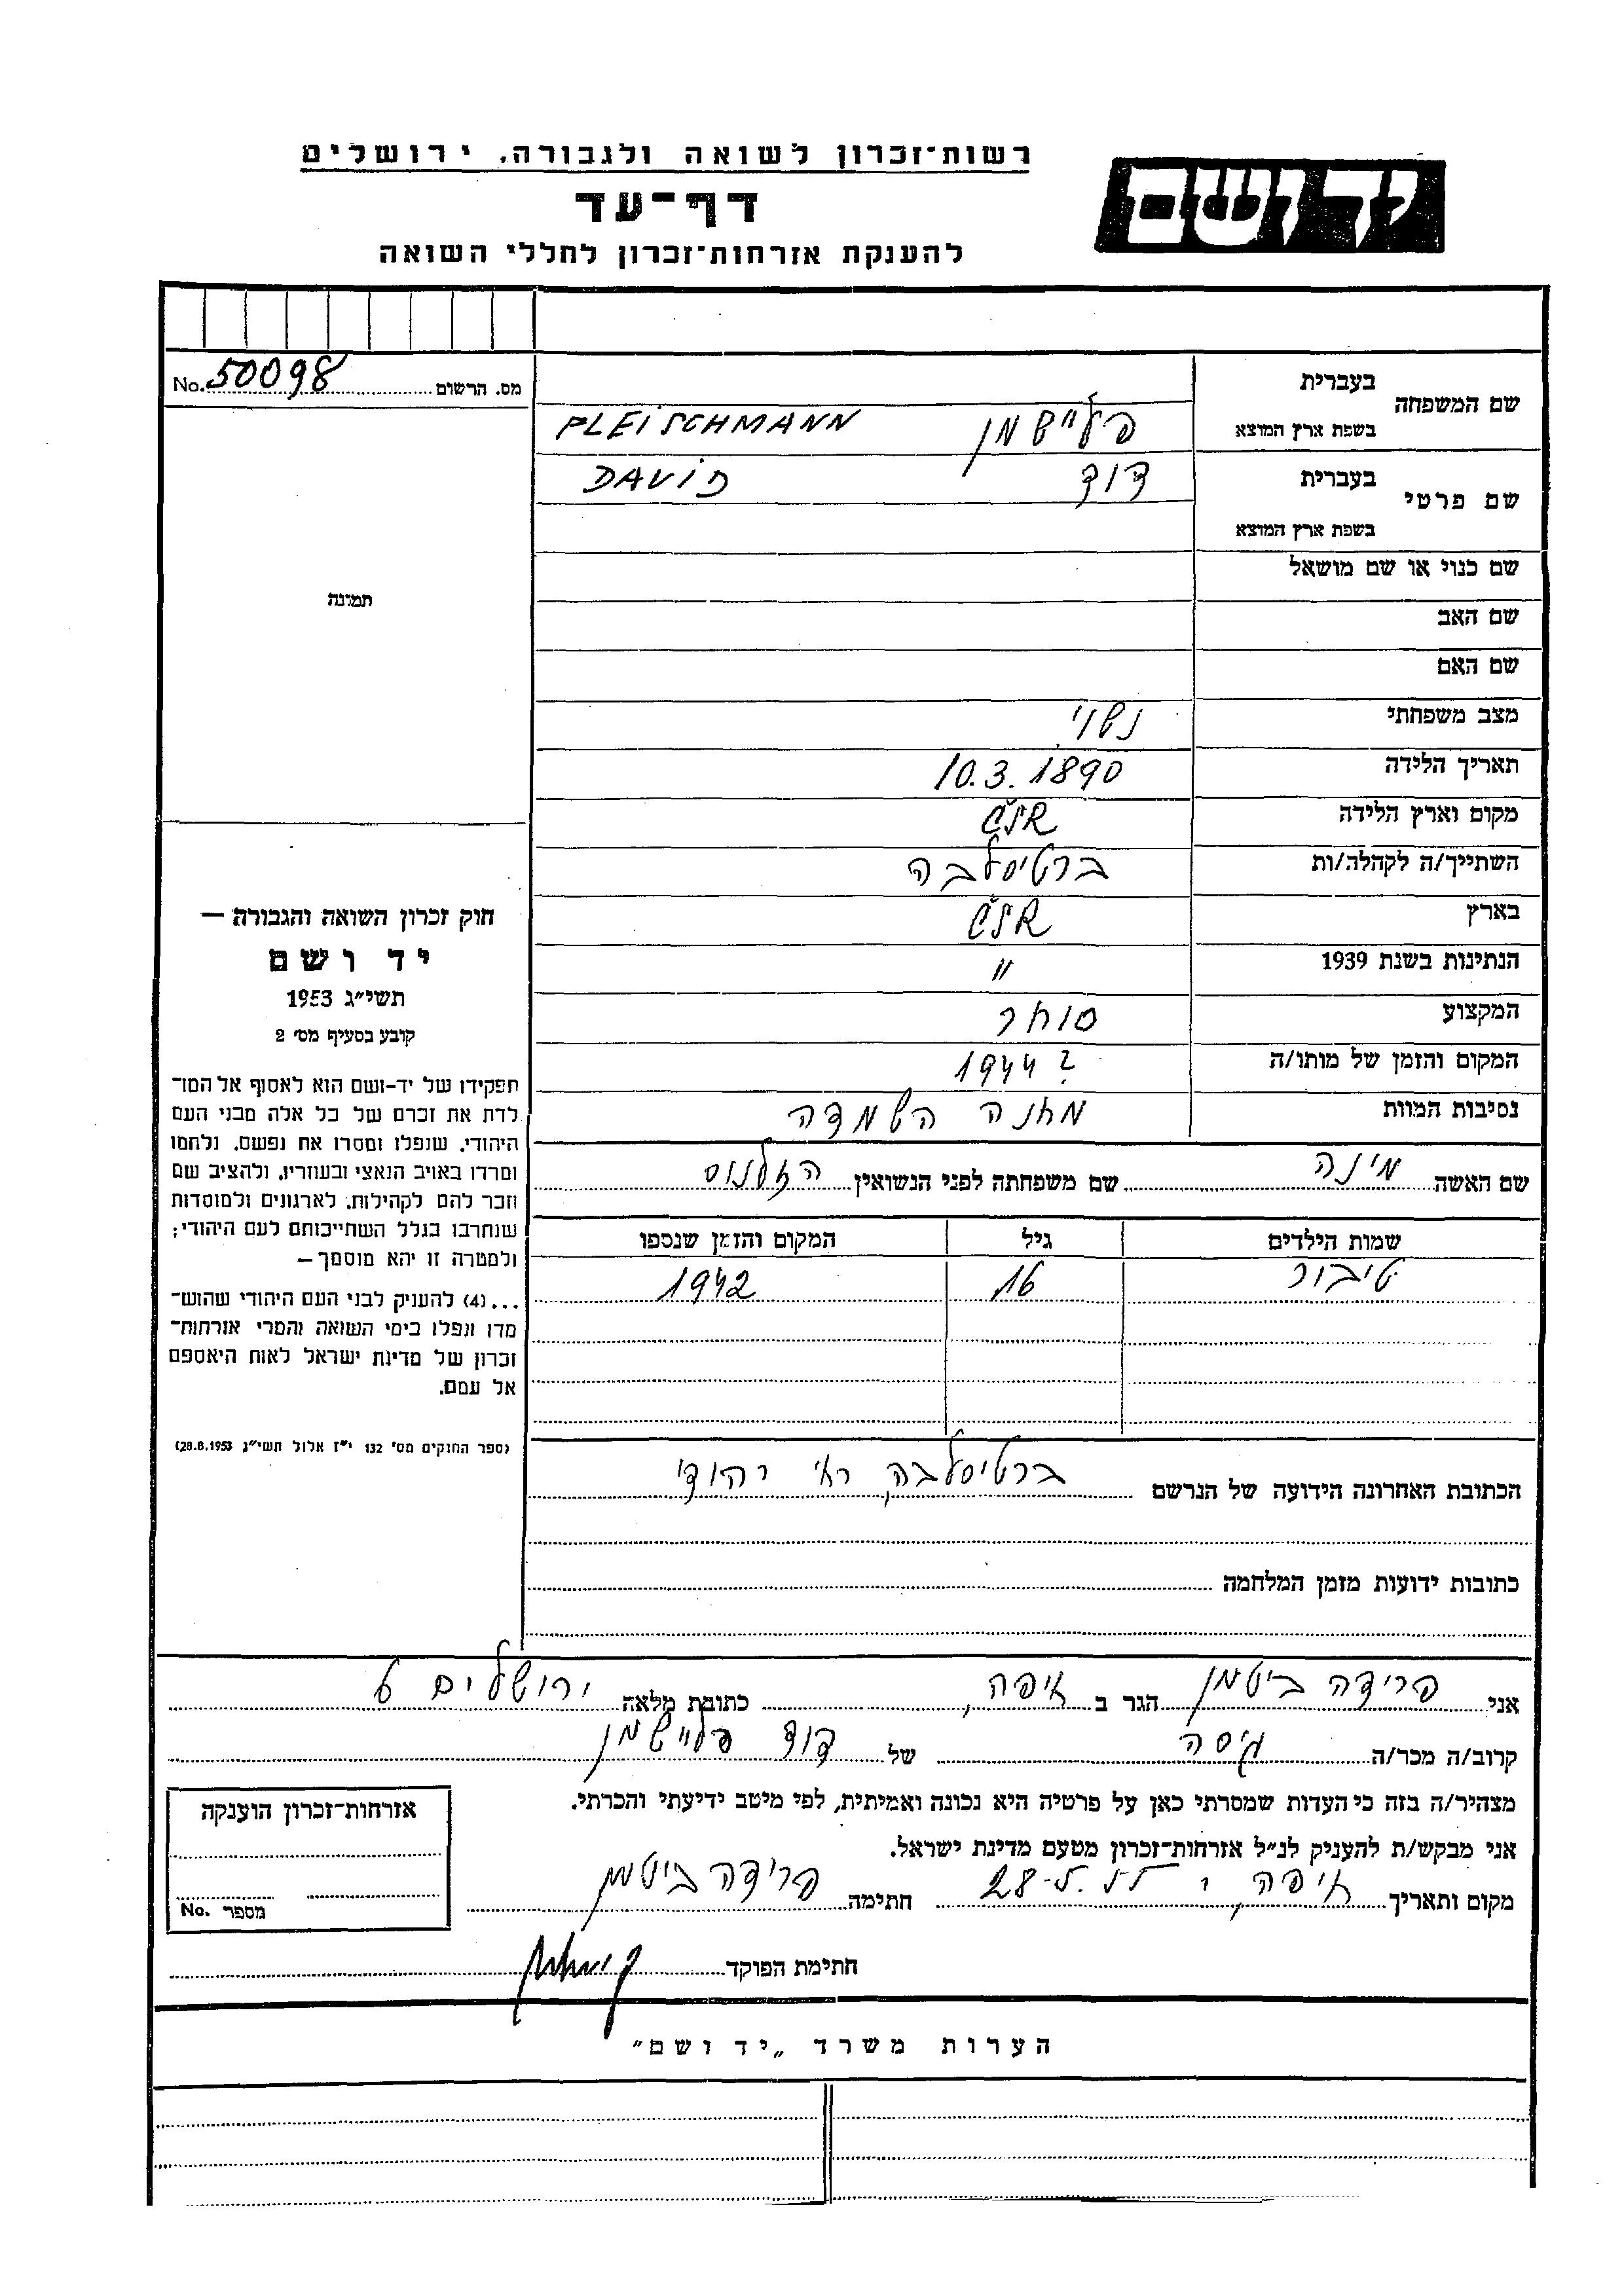 רשות־זכרון לשואה ולגבורה, ירושלים
יד ושם
דף־עד
להענקת אזרחות־זכרון לחללי השואה
מס. הרשום No. 50098
שם המשפחה
בעברית
בשפת ארץ המוצא
פליישמן PLEISCHMANN
שם פרטי
בעברית
דוד DAVID
בשפת ארץ המוצא
שם כנוי או שם מושאל
שם האב
שם האם
מצב משפחתי נשוי
תאריך הלידה 10.3.1890
מקום וארץ הלידה ČSR
השתייך/ה לקהלה/ות ברטיסלבה
בארץ ČSR
הנתינות בשנת 1939 "
המקצוע סוחר
המקום והזמן של מותו/ה 1944 ?
נסיבות המוות מחנה השמדה
תמונה
חוק זכרון השואה והגבורה —
יד ושם
תשי״ג 1953
קובע בסעיף מס׳ 2
תפקידו של יד-ושם הוא לאסוף אל המו־
לדת את זכרם של כל אלה מבני העם
היהודי, שנפלו ומסרו את נפשם, נלחמו
ומרדו באויב הנאצי ובעוזריו, ולהציב שם
וזכר להם לקהילות, לארגונים ולמוסדות
שנחרבו בגלל השתייכותם לעם היהודי;
ולמטרה זו יהא מוסמך—
...(4) להעניק לבני העם היהודי שהוש־
מדו ונפלו בימי השואה והמרי אזרחות־
זכרון של מדינת ישראל לאות היאספם
אל עמם.
(ספר החוקים מס׳ 132 י״ז אלול תשי״ג 28.8.1953)
שם האשה מינה שם משפחתה לפני הנשואין
שמות הילדים גיל המקום והזמן שנספו
טיבור 16 1942
הכתובת האחרונה הידועה של הנרשם ברטיסלבה, רא׳ יהודי
כתובות ידועות מזמן המלחמה
אני פרידה ביטמן הגר ב חיפה, כתובת מלאה ירושלים 6
קרוב/ה מכר/ה גיסה של דוד פליישמן
מצהיר/ה בזה כי העדות שמסרתי כאן על פרטיה היא נכונה ואמיתית, לפי מיטב ידיעתי והכרתי.
אני מבקש/ת להעניק לנ״ל אזרחות־זכרון מטעם מדינת ישראל.
מקום ותאריך חיפה, חתימה פרידה ביטמן
חתימת הפוקד
אזרחות־זכרון הוענקה
מספר No.
הערות משרד „יד ושם״